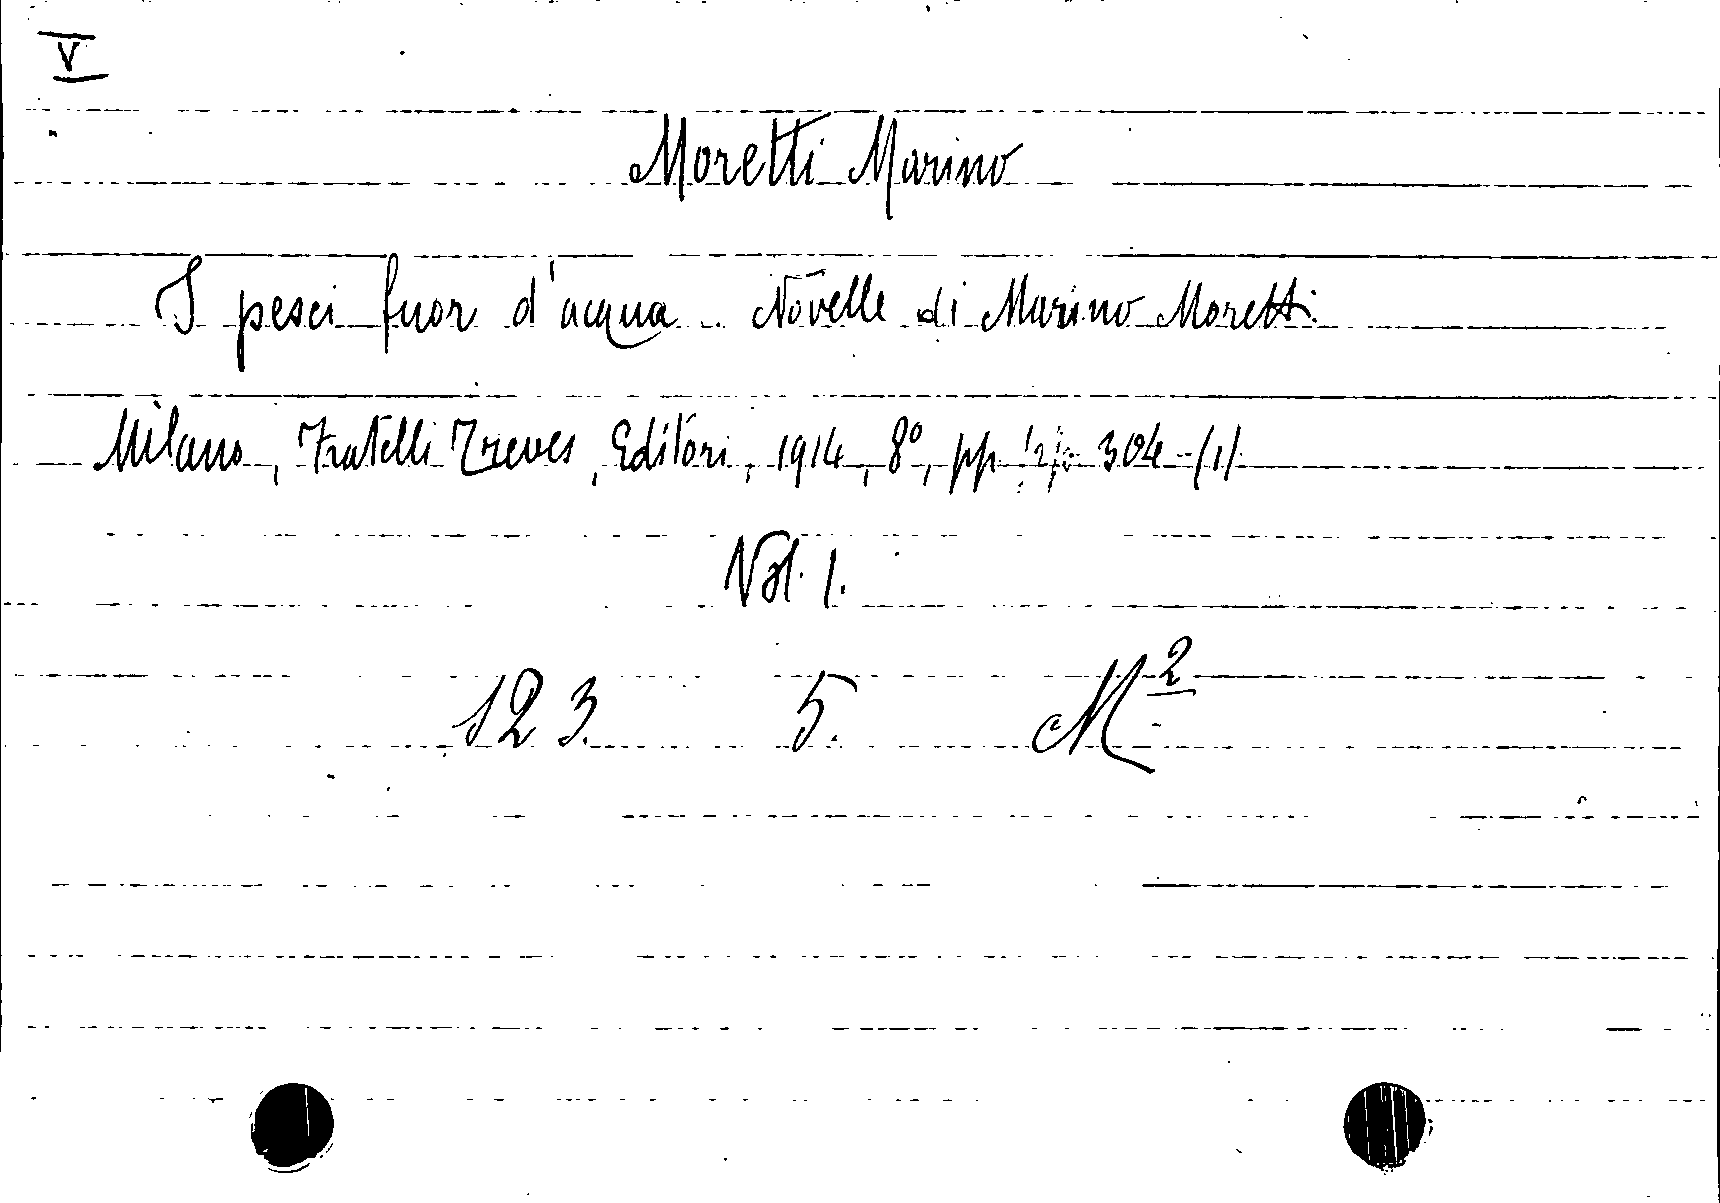 V
Moretti Marino
I pesci fuor d'acqua. Novelle di Marino Moretti.
Milano, Fratelli Treves, Editori, 1914, 8°, pp. 304-(1)
Vol. 1.
123. 5. M²